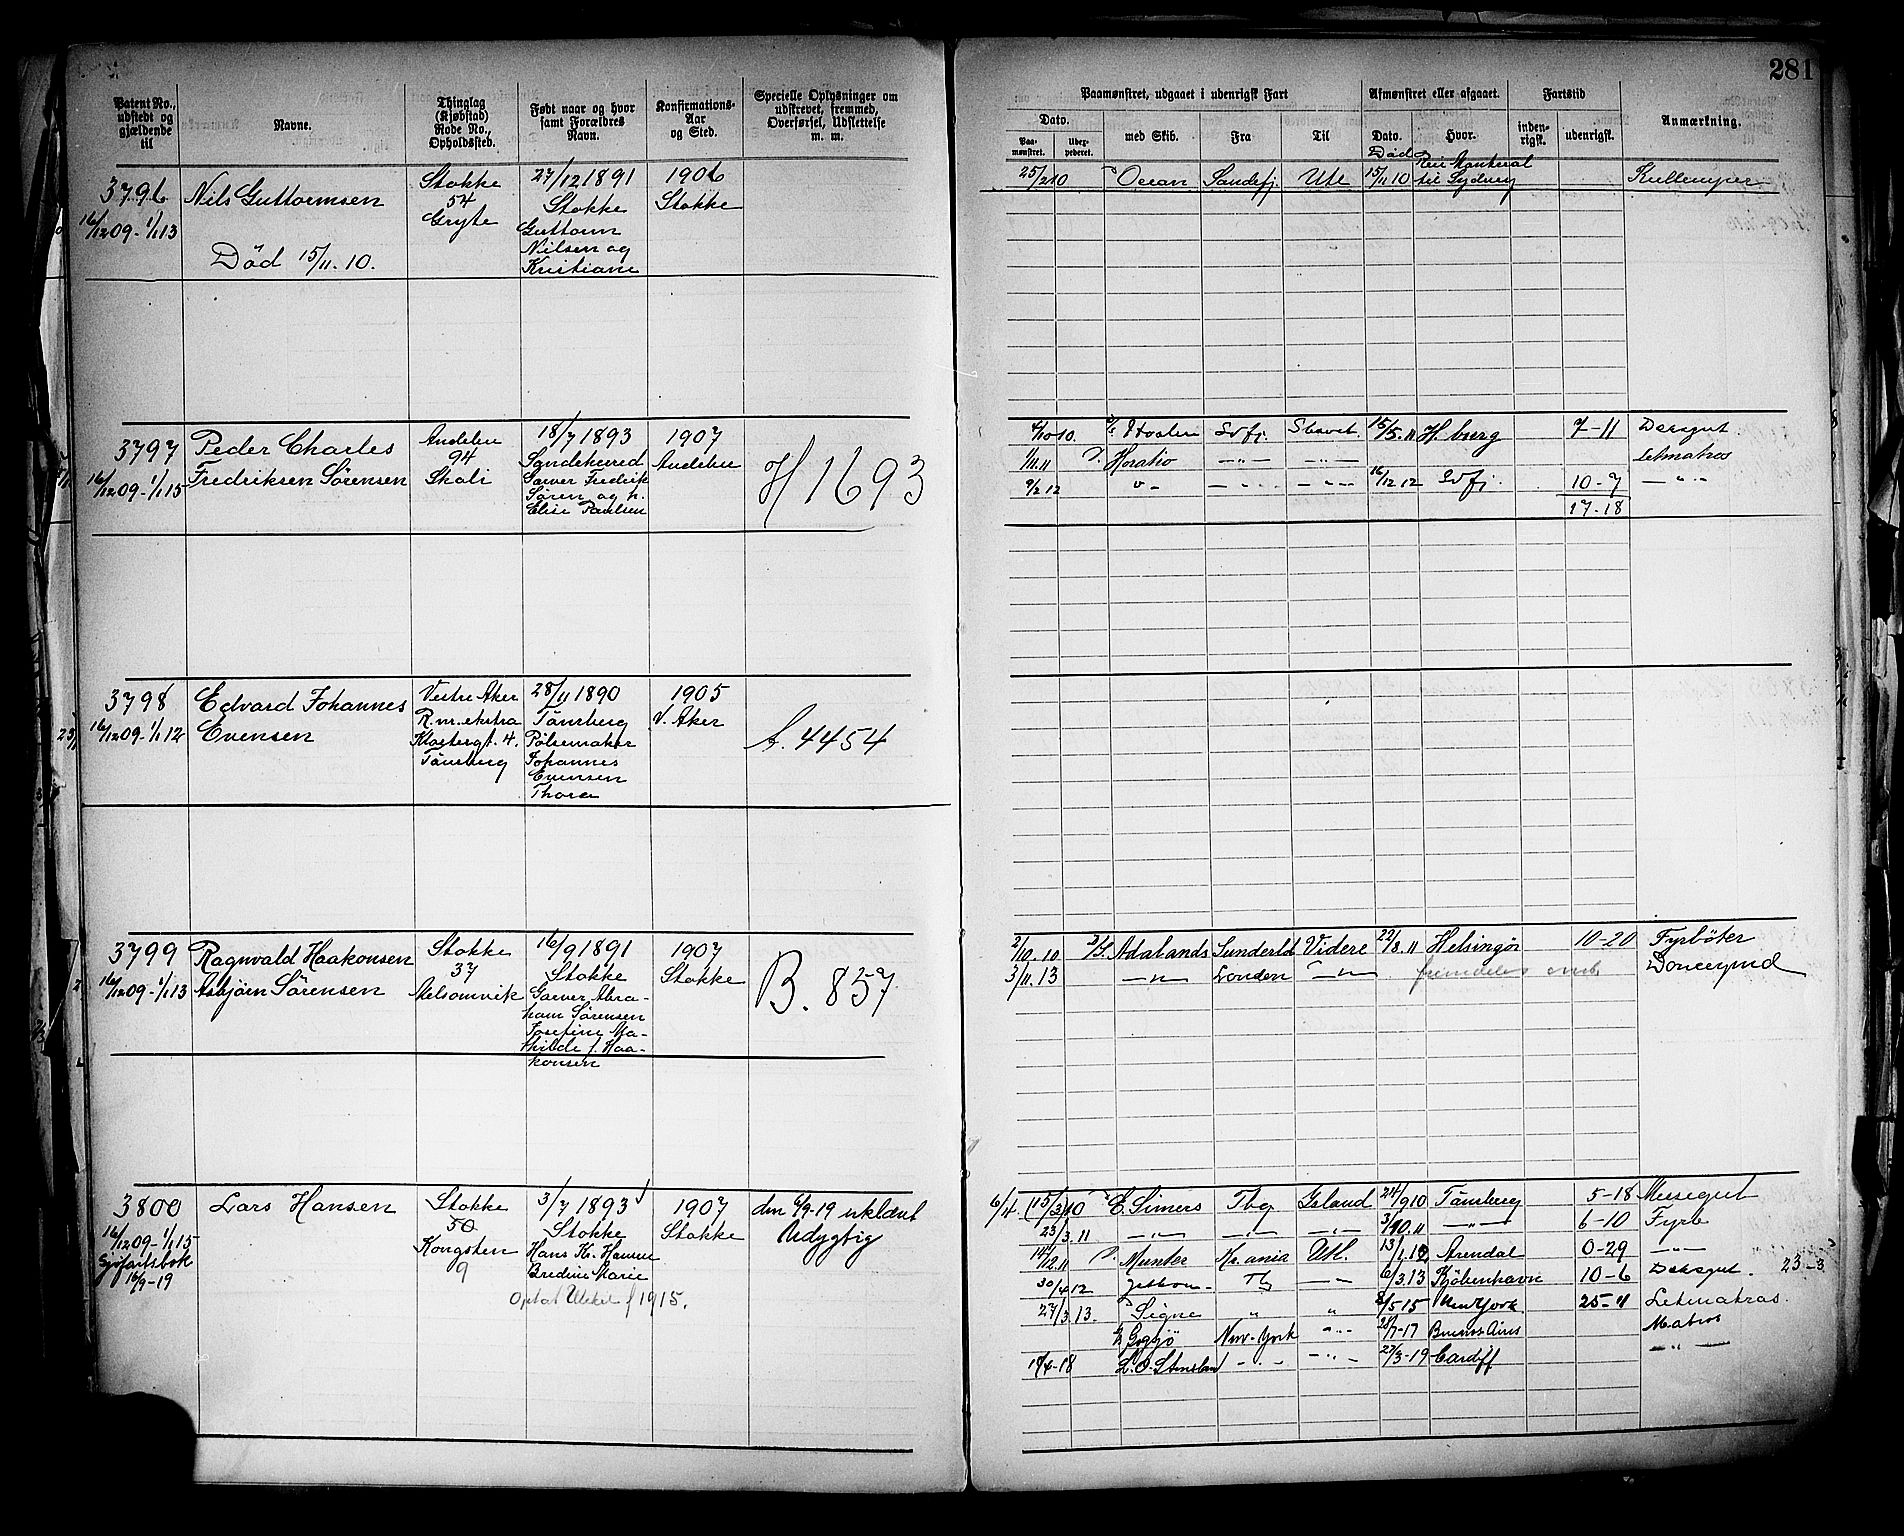 281
Patent No., udstedt og gjældende til
Navne.
Thinglag (Kjøbstad) Rode No., Opholdssted.
Født naar og hvor samt Forældres Navn.
Konfirmations-Aar og Sted.
Specielle Oplysninger om udstrevet, fremmed, Overførsel, Udslettelse m. m.
Paamønstret, udgaaet i udenrigsk Fart
Dato.
Paamønstret.
med Skib.
Fra
Til
Afmønstret eller afgaaet.
Dato.
Hvor.
Fartstid
indenrigsk.
udenrigsk.
Anmærkning.
3796
16/12 09-1/1 13
Nils Guttormsen
Død 15/11. 10.
Stokke
54
Gryte
27/12 1891
Stokke
Guttorm
Nilsen og
Kristiane
1906
Stokke
25/2 10 Ocean Sandefj. Ute Død 15/11 10 til Sydney
3797
16/12 09-1/1 15
Peder Charles
Fredriksen Sørensen
Andebu
94
Skoli
18/7 1893
Sandeherred
Garver Fredrik
Søren og h.
Elise Paulsen
1907
Andebu
H 1693
Hvalen Sdfj. 15/5. 11 H. burg 7-11 Deksgut
1/11. 11 Horatio Letmatros
9/2 12 16/12 12 Sdfj. 10-7
17-18
3798
16/12 09-1/1 12
Edvard Johannes
Evensen
Vestre Aker
R. nr. ekstra
Klostergt. 4.
Tönsberg
28/11 1890
Tönsberg
Pølsemaker
Johannes
Evensen
Thora
1905
V. Aker
A. 4454
3799
16/12 09-1/1 13
Ragnvald Haakonsen
Asbjörn Sörensen
Stokke
37
Melsomvik
16/9 1891
Stokke
Garver Abra-
ham Sørensen
Josefine Ma-
thilde f. Haa-
konsen
1907
Stokke
B. 857
2/10. 10 Adalands Sunderld Videre 22/8. 11 Helsingör 10-20 Fyrböter
3/11. 13 -"- London -"- fremdeles omb. Donkeymd
3800
16/12 09-1/1 15
Sjøfartsbok
16/9-19
Lars Hansen
Stokke
50
Kongsten
9
3/7 1893
Stokke
Hans Kr. Hansen
Bredine Marie
1915.
1907
Stokke
den 6/9-19 erklært
Udygtig
6/4. (15/3) 10 E. Simers Tbg Island 24/9 10 Tönsberg 5-18 Messegut
23/3. 11 -"- -"- -"- 3/10. 11 -"- 6-10 Fyrb
14/12. 11 Munter Kr. ania Utl. 13/1. 12 Arendal 0-29 -"-
30/4 12 Tbg -"- 6/3. 13 Kjöbenhavn 10-6 Deksgut. 23-3
27/3. 13. Signe " " 8/5 15 New York 25-11 Letmatros
New-York -"- 28/7-17 Buenos Aires Matros
18/4-18 -"- -"- 27/3-19 Cardiff -"-